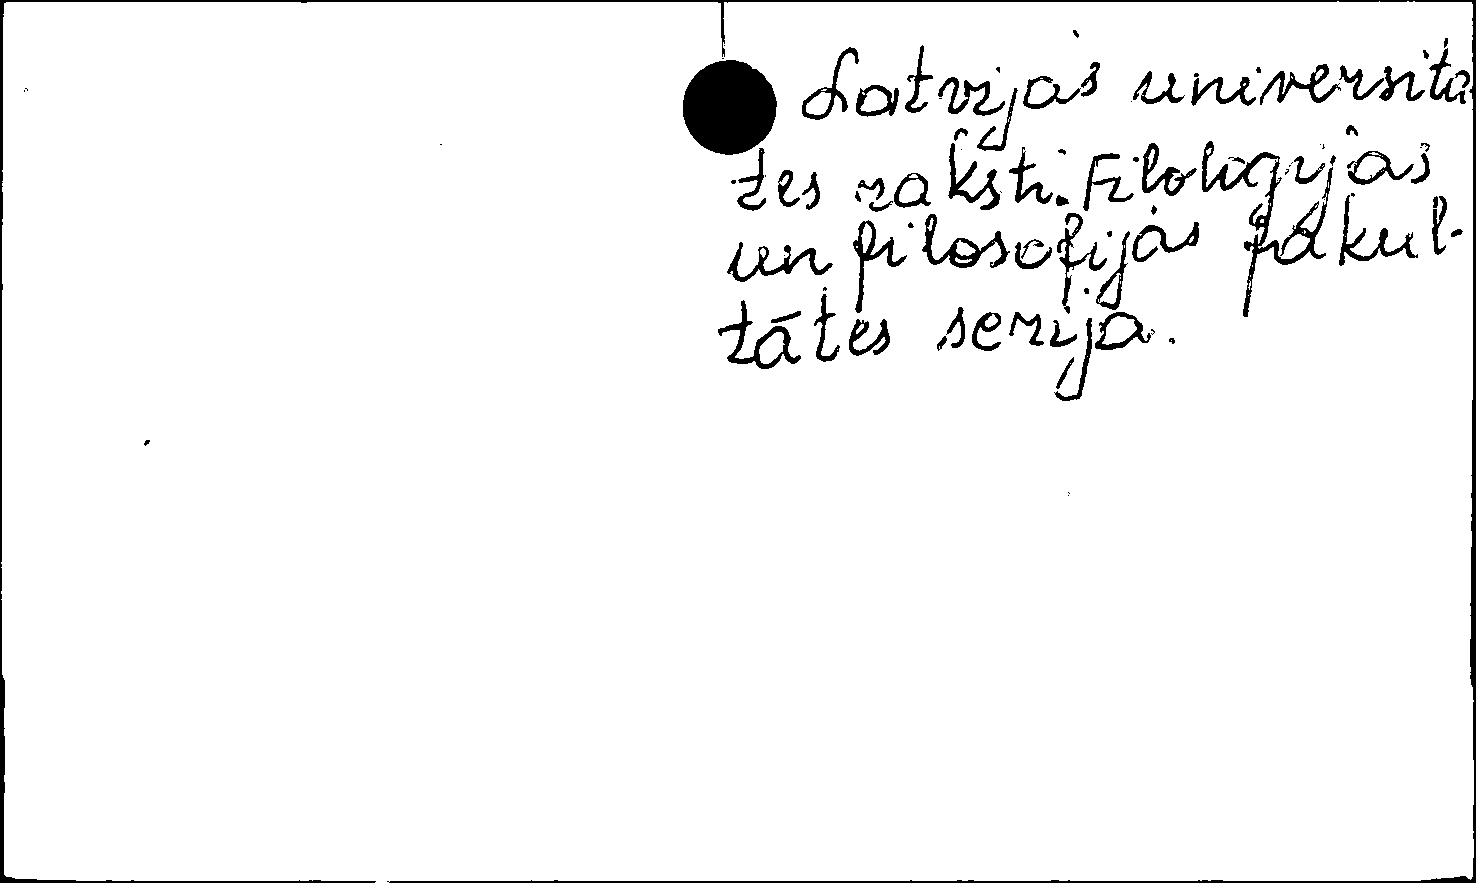 Latvijas universita
tes raksti. Filologijas
un filosofijas fakul-
tātes serija.